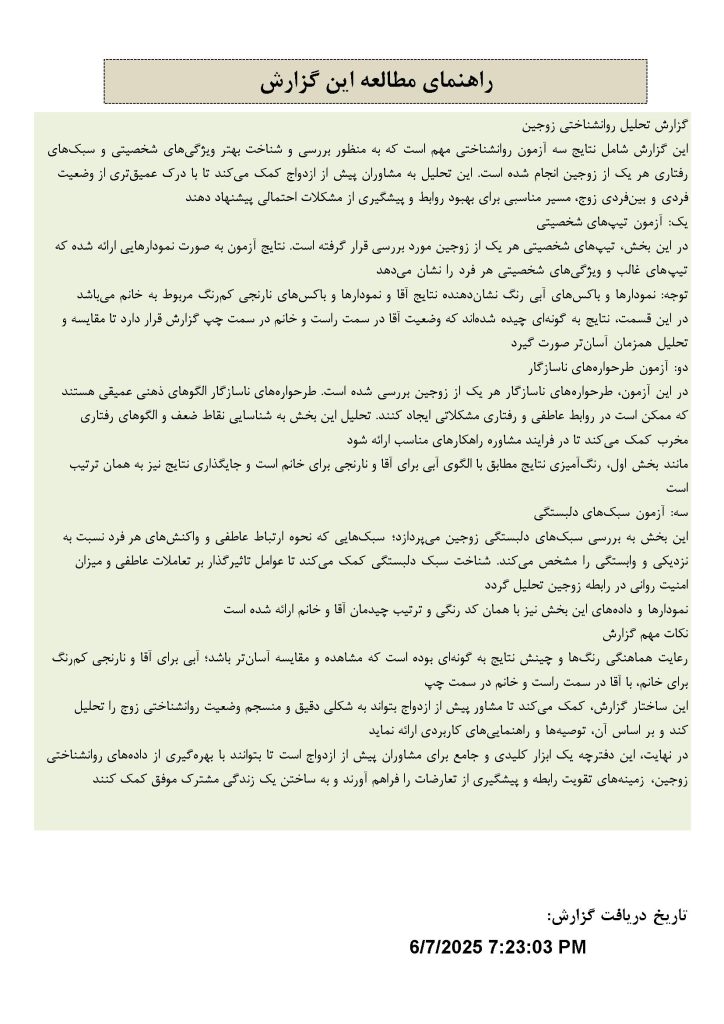 راهنمای مطالعه این گزارش
گزارش تحلیل روانشناختی زوجین
این گزارش شامل نتایج سه آزمون روانشناختی مهم است که به منظور بررسی و شناخت بهتر ویژگی‌های شخصیتی و سبک‌های
رفتاری هر یک از زوجین انجام شده است. این تحلیل به مشاوران پیش از ازدواج کمک می‌کند تا با درک عمیق‌تری از وضعیت
فردی و بین‌فردی زوج، مسیر مناسبی برای بهبود روابط و پیشگیری از مشکلات احتمالی پیشنهاد دهند
یک: آزمون تیپ‌های شخصیتی
در این بخش، تیپ‌های شخصیتی هر یک از زوجین مورد بررسی قرار گرفته است. نتایج آزمون به صورت نمودارهایی ارائه شده که
تیپ‌های غالب و ویژگی‌های شخصیتی هر فرد را نشان می‌دهد
توجه: نمودارها و باکس‌های آبی رنگ نشان‌دهنده نتایج آقا و نمودارها و باکس‌های نارنجی کم‌رنگ مربوط به خانم می‌باشد
در این قسمت، نتایج به گونه‌ای چیده شده‌اند که وضعیت آقا در سمت راست و خانم در سمت چپ گزارش قرار دارد تا مقایسه و
تحلیل همزمان آسان‌تر صورت گیرد
دو: آزمون طرحواره‌های ناسازگار
در این آزمون، طرحواره‌های ناسازگار هر یک از زوجین بررسی شده است. طرحواره‌های ناسازگار الگوهای ذهنی عمیقی هستند
که ممکن است در روابط عاطفی و رفتاری مشکلاتی ایجاد کنند. تحلیل این بخش به شناسایی نقاط ضعف و الگوهای رفتاری
مخرب کمک می‌کند تا در فرایند مشاوره راهکارهای مناسب ارائه شود
مانند بخش اول، رنگ‌آمیزی نتایج مطابق با الگوی آبی برای آقا و نارنجی برای خانم است و جایگذاری نتایج نیز به همان ترتیب
است
سه: آزمون سبک‌های دلبستگی
این بخش به بررسی سبک‌های دلبستگی زوجین می‌پردازد؛ سبک‌هایی که نحوه ارتباط عاطفی و واکنش‌های هر فرد نسبت به
نزدیکی و وابستگی را مشخص می‌کند. شناخت سبک دلبستگی کمک می‌کند تا عوامل تاثیرگذار بر تعاملات عاطفی و میزان
امنیت روانی در رابطه زوجین تحلیل گردد
نمودارها و داده‌های این بخش نیز با همان کد رنگی و ترتیب چیدمان آقا و خانم ارائه شده است
نکات مهم گزارش
رعایت هماهنگی رنگ‌ها و چینش نتایج به گونه‌ای بوده است که مشاهده و مقایسه آسان‌تر باشد؛ آبی برای آقا و نارنجی کم‌رنگ
برای خانم، با آقا در سمت راست و خانم در سمت چپ
این ساختار گزارش، کمک می‌کند تا مشاور پیش از ازدواج بتواند به شکلی دقیق و منسجم وضعیت روانشناختی زوج را تحلیل
کند و بر اساس آن، توصیه‌ها و راهنمایی‌های کاربردی ارائه نماید
در نهایت، این دفترچه یک ابزار کلیدی و جامع برای مشاوران پیش از ازدواج است تا بتوانند با بهره‌گیری از داده‌های روانشناختی
زوجین، زمینه‌های تقویت رابطه و پیشگیری از تعارضات را فراهم آورند و به ساختن یک زندگی مشترک موفق کمک کنند
تاریخ دریافت گزارش:
6/7/2025 7:23:03 PM